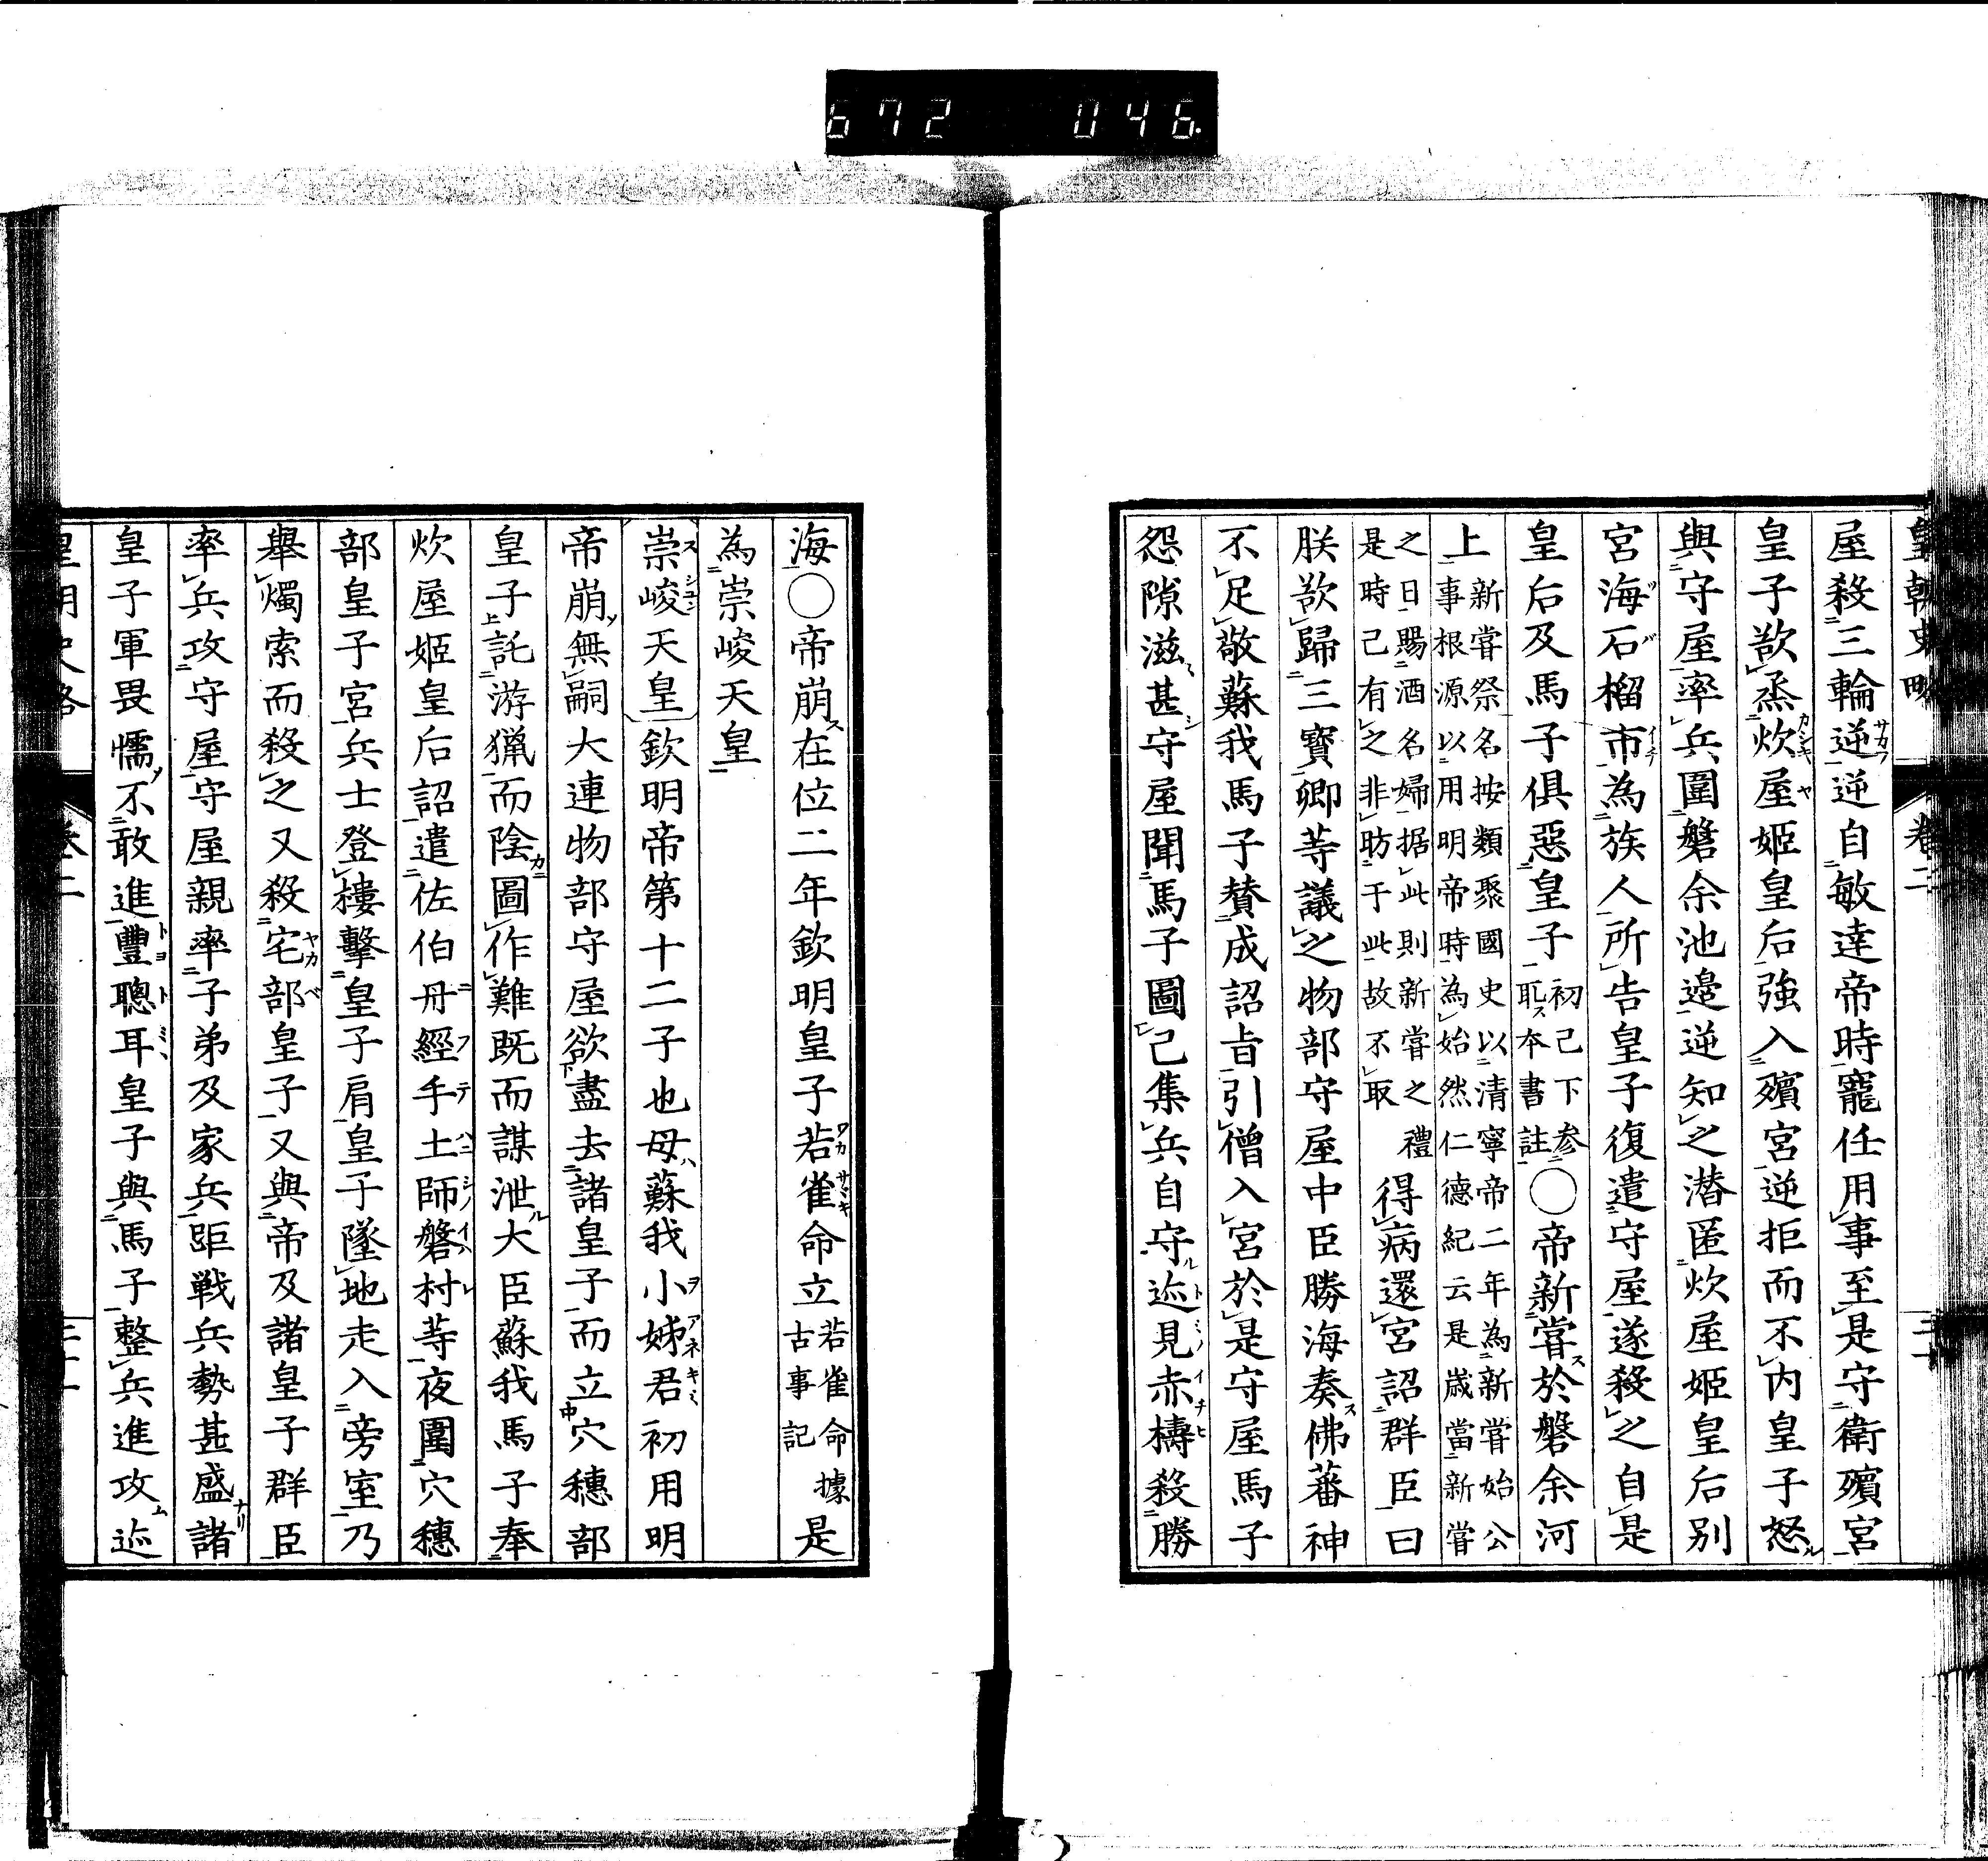 672 046
皇朝史略 卷二
屋殺三輪逆逆自敏達帝時寵任用事至是守衛殯宮
皇子欲烝炊屋姬皇后強入殯宮逆拒而不内皇子怒
與守屋率兵圍磐余池邉逆知之潜匿炊屋姬皇后別
宮海石榴市為族人所告皇子復遣守屋遂殺之自是
皇后及馬子俱惡皇子初己下参耴本書註○帝新嘗於磐余河
上新嘗祭名按類聚國史以清寧帝二年為新嘗始公事根源以用明帝時為始然仁德紀云是歳當新嘗
之日賜酒名婦据此則新嘗之禮是時已有之非昉于此故不取得病還宮詔群臣曰
朕欲歸三寳卿等議之物部守屋中臣勝海奏佛蕃神
不足敬蘇我馬子賛成詔㫖引僧入宮於是守屋馬子
怨隙滋甚守屋聞馬子圖己集兵自守迹見赤檮殺勝
海○帝崩在位二年欽明皇子若雀命立若雀命據古事記是
為崇峻天皇
崇峻天皇欽明帝第十二子也母蘇我小姊君初用明
帝崩無嗣大連物部守屋欲盡去諸皇子而立穴穗部
皇子託游獵而陰圖作難既而謀泄大臣蘇我馬子奉
炊屋姬皇后詔遣佐伯丹經手土師磐村等夜圍穴穗
部皇子宮兵士登樓擊皇子肩皇子墜地走入旁室乃
舉燭索而殺之又殺宅部皇子又與帝及諸皇子群臣
率兵攻守屋守屋親率子弟及家兵距戦兵勢甚盛諸
皇子軍畏懦不敢進豐聰耳皇子與馬子整兵進攻迹